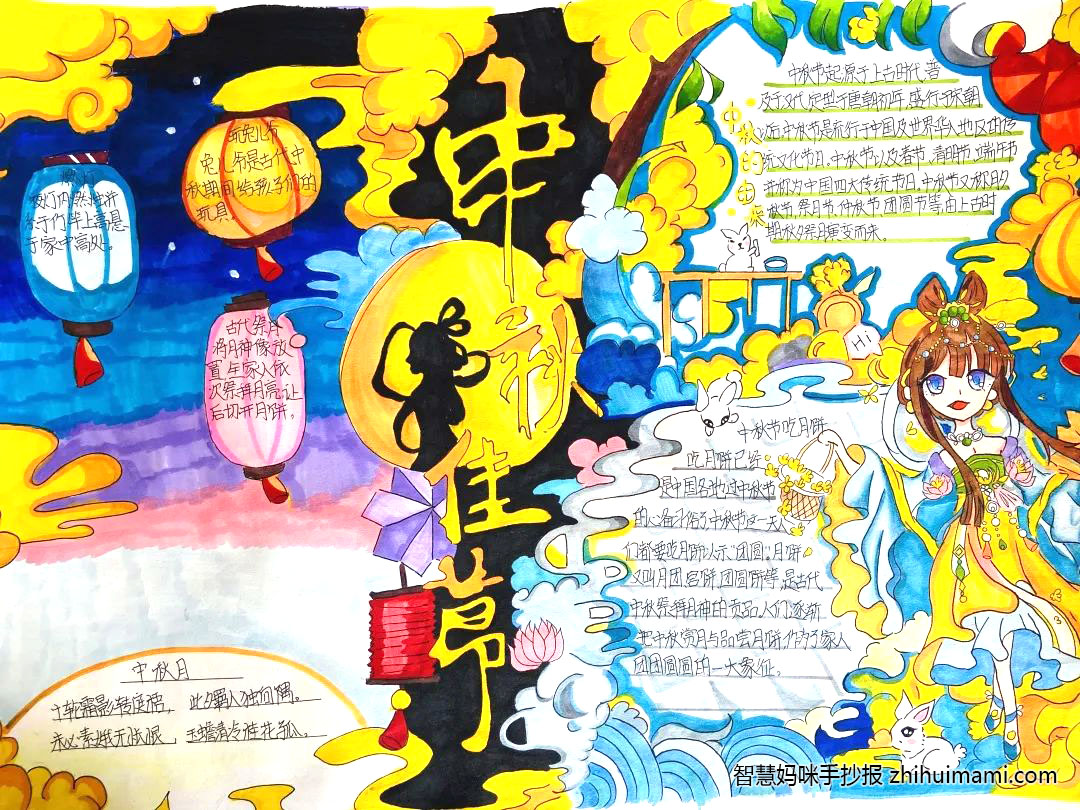 中秋佳节
燃灯
夜灯内燃烛并
系于竹竿上高悬
于家中高处。
玩兔儿爷
兔儿爷是古代中
秋期间给孩子们的
玩具。
古代祭月
将月神像放
置,全家人依
次祭拜月亮,让
后切开月饼。
中秋月
十轮霜影转庭梧,此夕羁人独向隅。
未必素娥无怅恨,玉蟾清冷桂花孤。
中秋的由来
中秋节起源于上古时代,普
及于汉代,定型于唐朝初年,盛行于宋朝
以后,中秋节是流行于中国及世界华人地区的传
统文化节日,中秋节以及春节,清明节,端午节
并称为中国四大传统节日,中秋节又称月夕
秋节,祭月节,仲秋节,团圆节等,由上古时
期秋夕祭月演变而来。
Hi
中秋节吃月饼
吃月饼已经
是中国各地过中秋节
的必备习俗了中秋节这一天人
们都要吃月饼以示“团圆”,月饼
又叫月团,宫饼,团圆饼等,是古代
中秋祭拜月神的贡品,人们逐渐
把中秋赏月与品尝月饼作为了家人
团团圆圆的一大象征。
智慧妈咪手抄报 zhihuimami.com